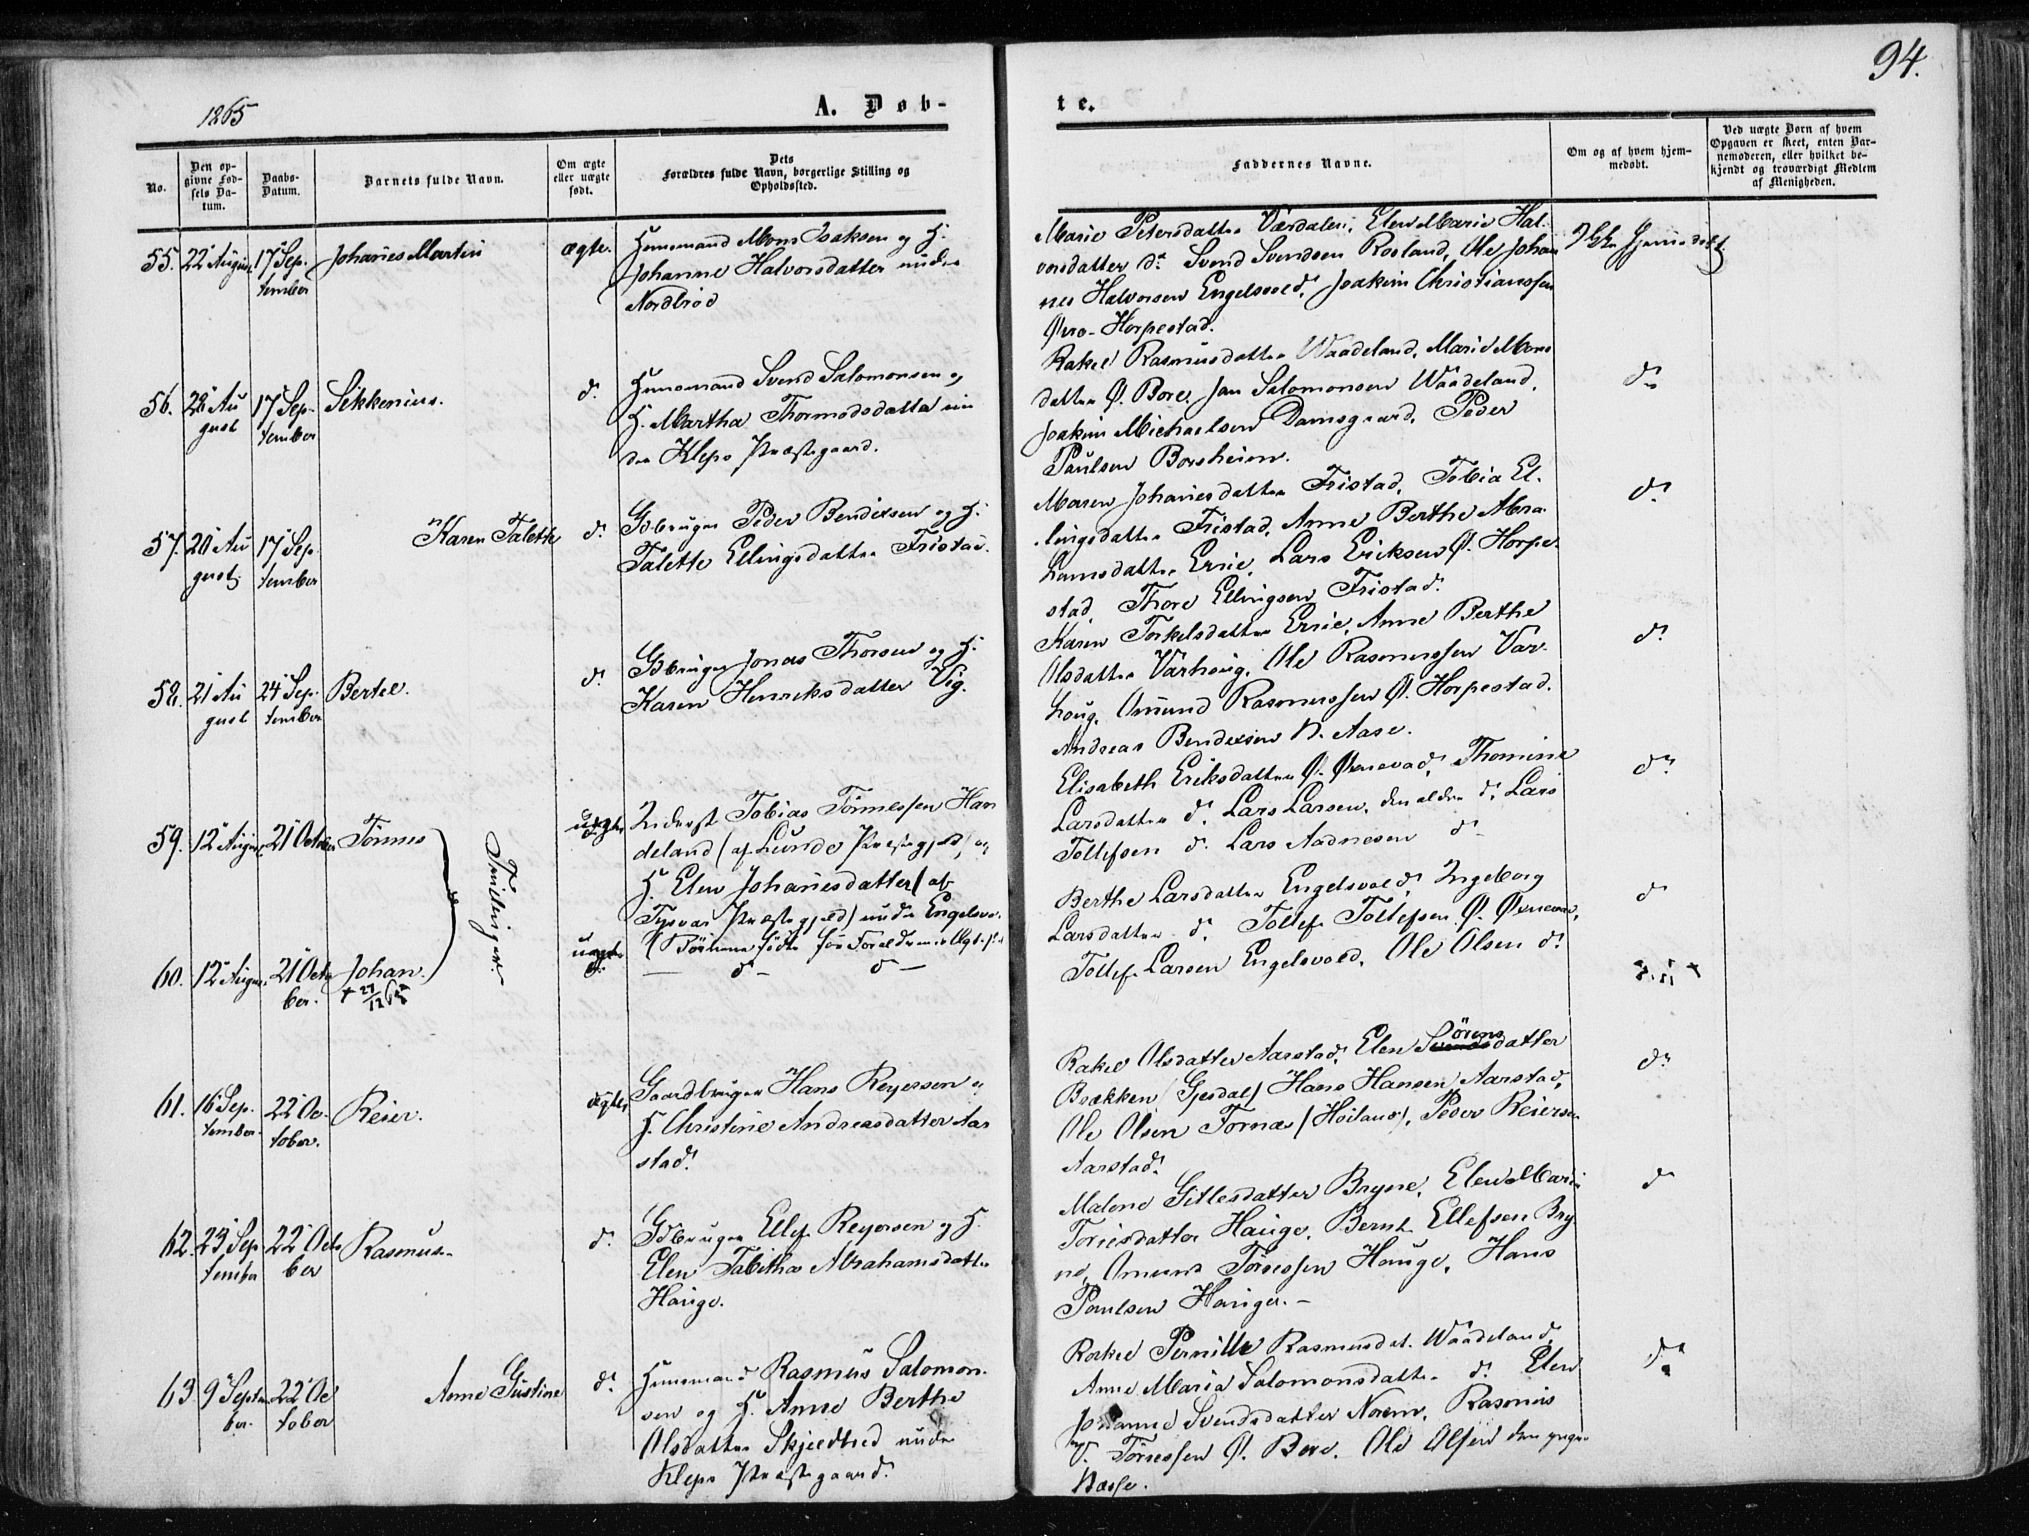 94.
1865
A. Døb-
te.
No.
Den op-
givne Fød-
sels Da-
tum.
Daabs-
Datum.
Barnets fulde Navn.
Om ægte
eller uægte
født.
Dets
Forældres fulde Navn, borgerlige Stilling og
Opholdssted.
Faddernes Navne.
Om og af hvem hjem-
medøbt.
Ved uægte Børn af hvem
Opgaven er skeet, enten Bar-
nemoderen, eller hvilket be-
kjendt og troværdigt Medlem
af Menigheden.
55. 22 August 17 Sep-
tember
Johanes Martin
ægte.
Huusmand Mons Isaksen og H.
Johanne Halvorsdatter under
Nordbrød
Marie Petersdatter Værdalen, Elen Marie Hal-
vorsdatter do Svend Svendsen Rosland, Ole Johan
nes Halvorsen Engelsvold, Joakim Christianssen
Øvre-Horpestad.
Ikke Hjemmedøbt
56. 28 Au
gust
17 Sep-
tember
Sikkenius.
do
Huusmand Svend Salomonsen og
H. Martha Thormodsdatter un
der Klepp Præstegaard.
Rakel Rasmusdatter Waadeland, Marie Mons
datter Ø. Bore, Jan Salomonsen Waadeland,
Joakim Michaelsen Damsgaard, Peder
Paulsen Borsheim.
do
57. 20 Au
gust
17 Sep
tember
Karen Talette
do
Gbruger Peder Bendixsen og H.
Talette Ellingsdatter Fristad.
Maren Johanesdatter Fristad, Tobia El-
lingsdatter Fristad, Anne Berthe Abra-
hamsdatter Ersie, Lars Ericksen Ø. Horpe-
stad, Thore Ellingsen Fristad.
do
58. 21 Au
gust
24 Sep-
tember
Bertel.
do
Gbruger Jonas Thorsen og H.
Karen Henriksdatter Vig.
Karen Torkelsdatter Ersie, Anne Berthe
Olsdatter Varhoug, Ole Rasmussen Var-
houg, Omund Rasmussen Ø. Horpestad.
Andreas Bendixsen N. Aase.
do
59. 12 August 21 October
Tønnes
Tvillinger.
uægte
Inderst Tobias Tønnessen Hau
deland (af Lunde Præstegjeld) og
H. Elen Johanesdatter (af
Tysvær Præstegjeld) under Engelsvo.
(Børnene fødte før Forældrenes Ægteskab
Elisabeth Eriksdatter Ø. Øxnevad, Thomine
Larsdatter do, Lars Larsen, den ældre do, Lars
Tollefsen do Lars Aadnesen do
do
60. 12 August 21 Octo
ber.
Johan.
+ 27/12 65
uægte
do
— do — do —
Berthe Larsdatter Engelsvold, Ingeborg
Larsdatter do. Tollef Tollefsen Ø. Øxnevad,
Tollef Larsen Engelsvold, Ole Olsen do
do
61. 16 Sep-
tember
22 Oc-
tober.
Reier.
ægte
Gaardbruger Hans Reyersen og
H. Christine Andreasdatter Aar
stad.
Rakel Olsdatter Aarstad, Elen Sörensdatter
Brækken (Gjesdal) Hans Hansen Aarstad,
Ole Olsen Tornæs (Høiland), Peder Reiersen
Aarstad.
do
62. 23 Sep
tember
22 Octo
ber
Rasmus.
do
Gbruger Ellef Reyersen og H.
Elen Tabitha Abrahamsdatter
Hauge.
Malene Gitlesdatter Bryne, Elen Marie
Torresdatter Hauge, Bernt Ellefsen Bry
ne, Omund Törressen Hauge, Hans
Paulsen Hauge. —
do
63 9 Septem
ber.
22 Oc
tober
Anne Gustine
do
Huusmand Rasmus Salomon-
sen og H. Anne Berthe
Olsdatter Skjeldbred under
Klepp Præstegaard.
Rakel Pernille Rasmusdat. Waadeland,
Anne Maria Salomonsdatter do. Elen
Johanne Svendsdatter Norem, Rasmus
V. Törressen Ø. Bore, Ole Olsen den yngre
Næsse.
do